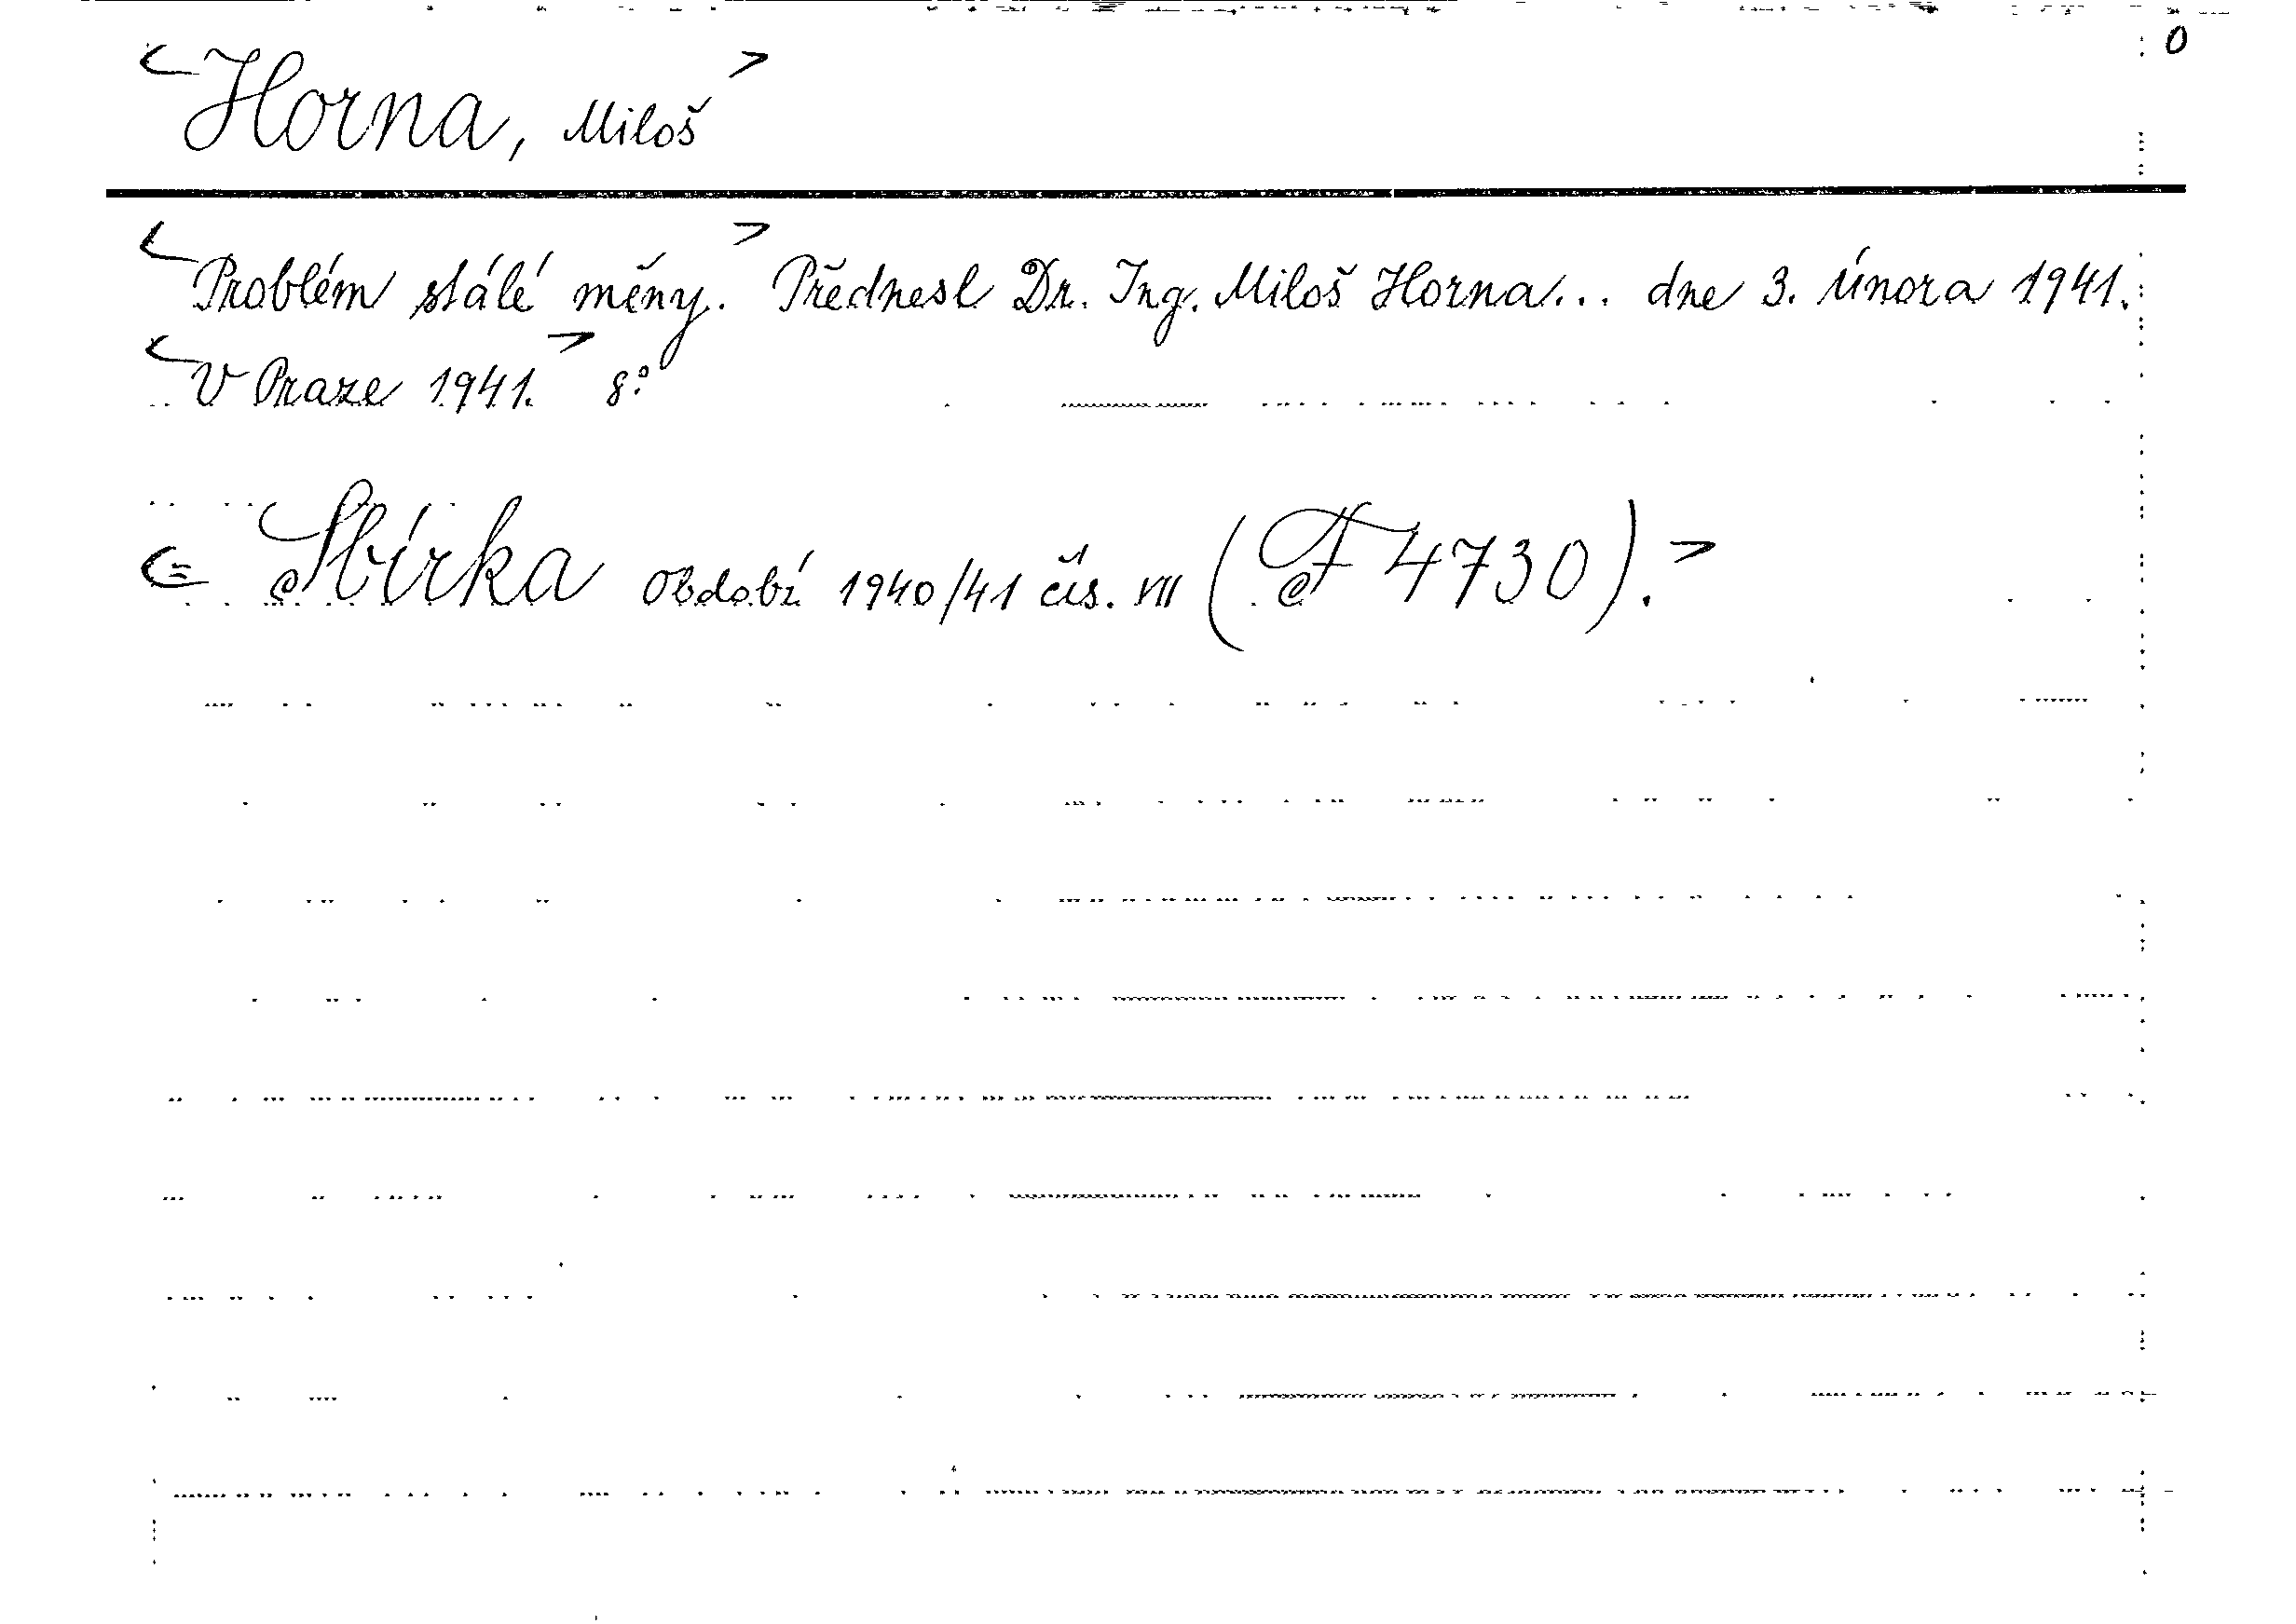 0
<Horna, Miloš>
<Problém stálé měny.> Přednesl Dr. Ing. Miloš Horna... dne 3. února 1941.
<V Praze 1941.> 8º
<= Sbírka období 1940/41 čís. VII (F 4730).>